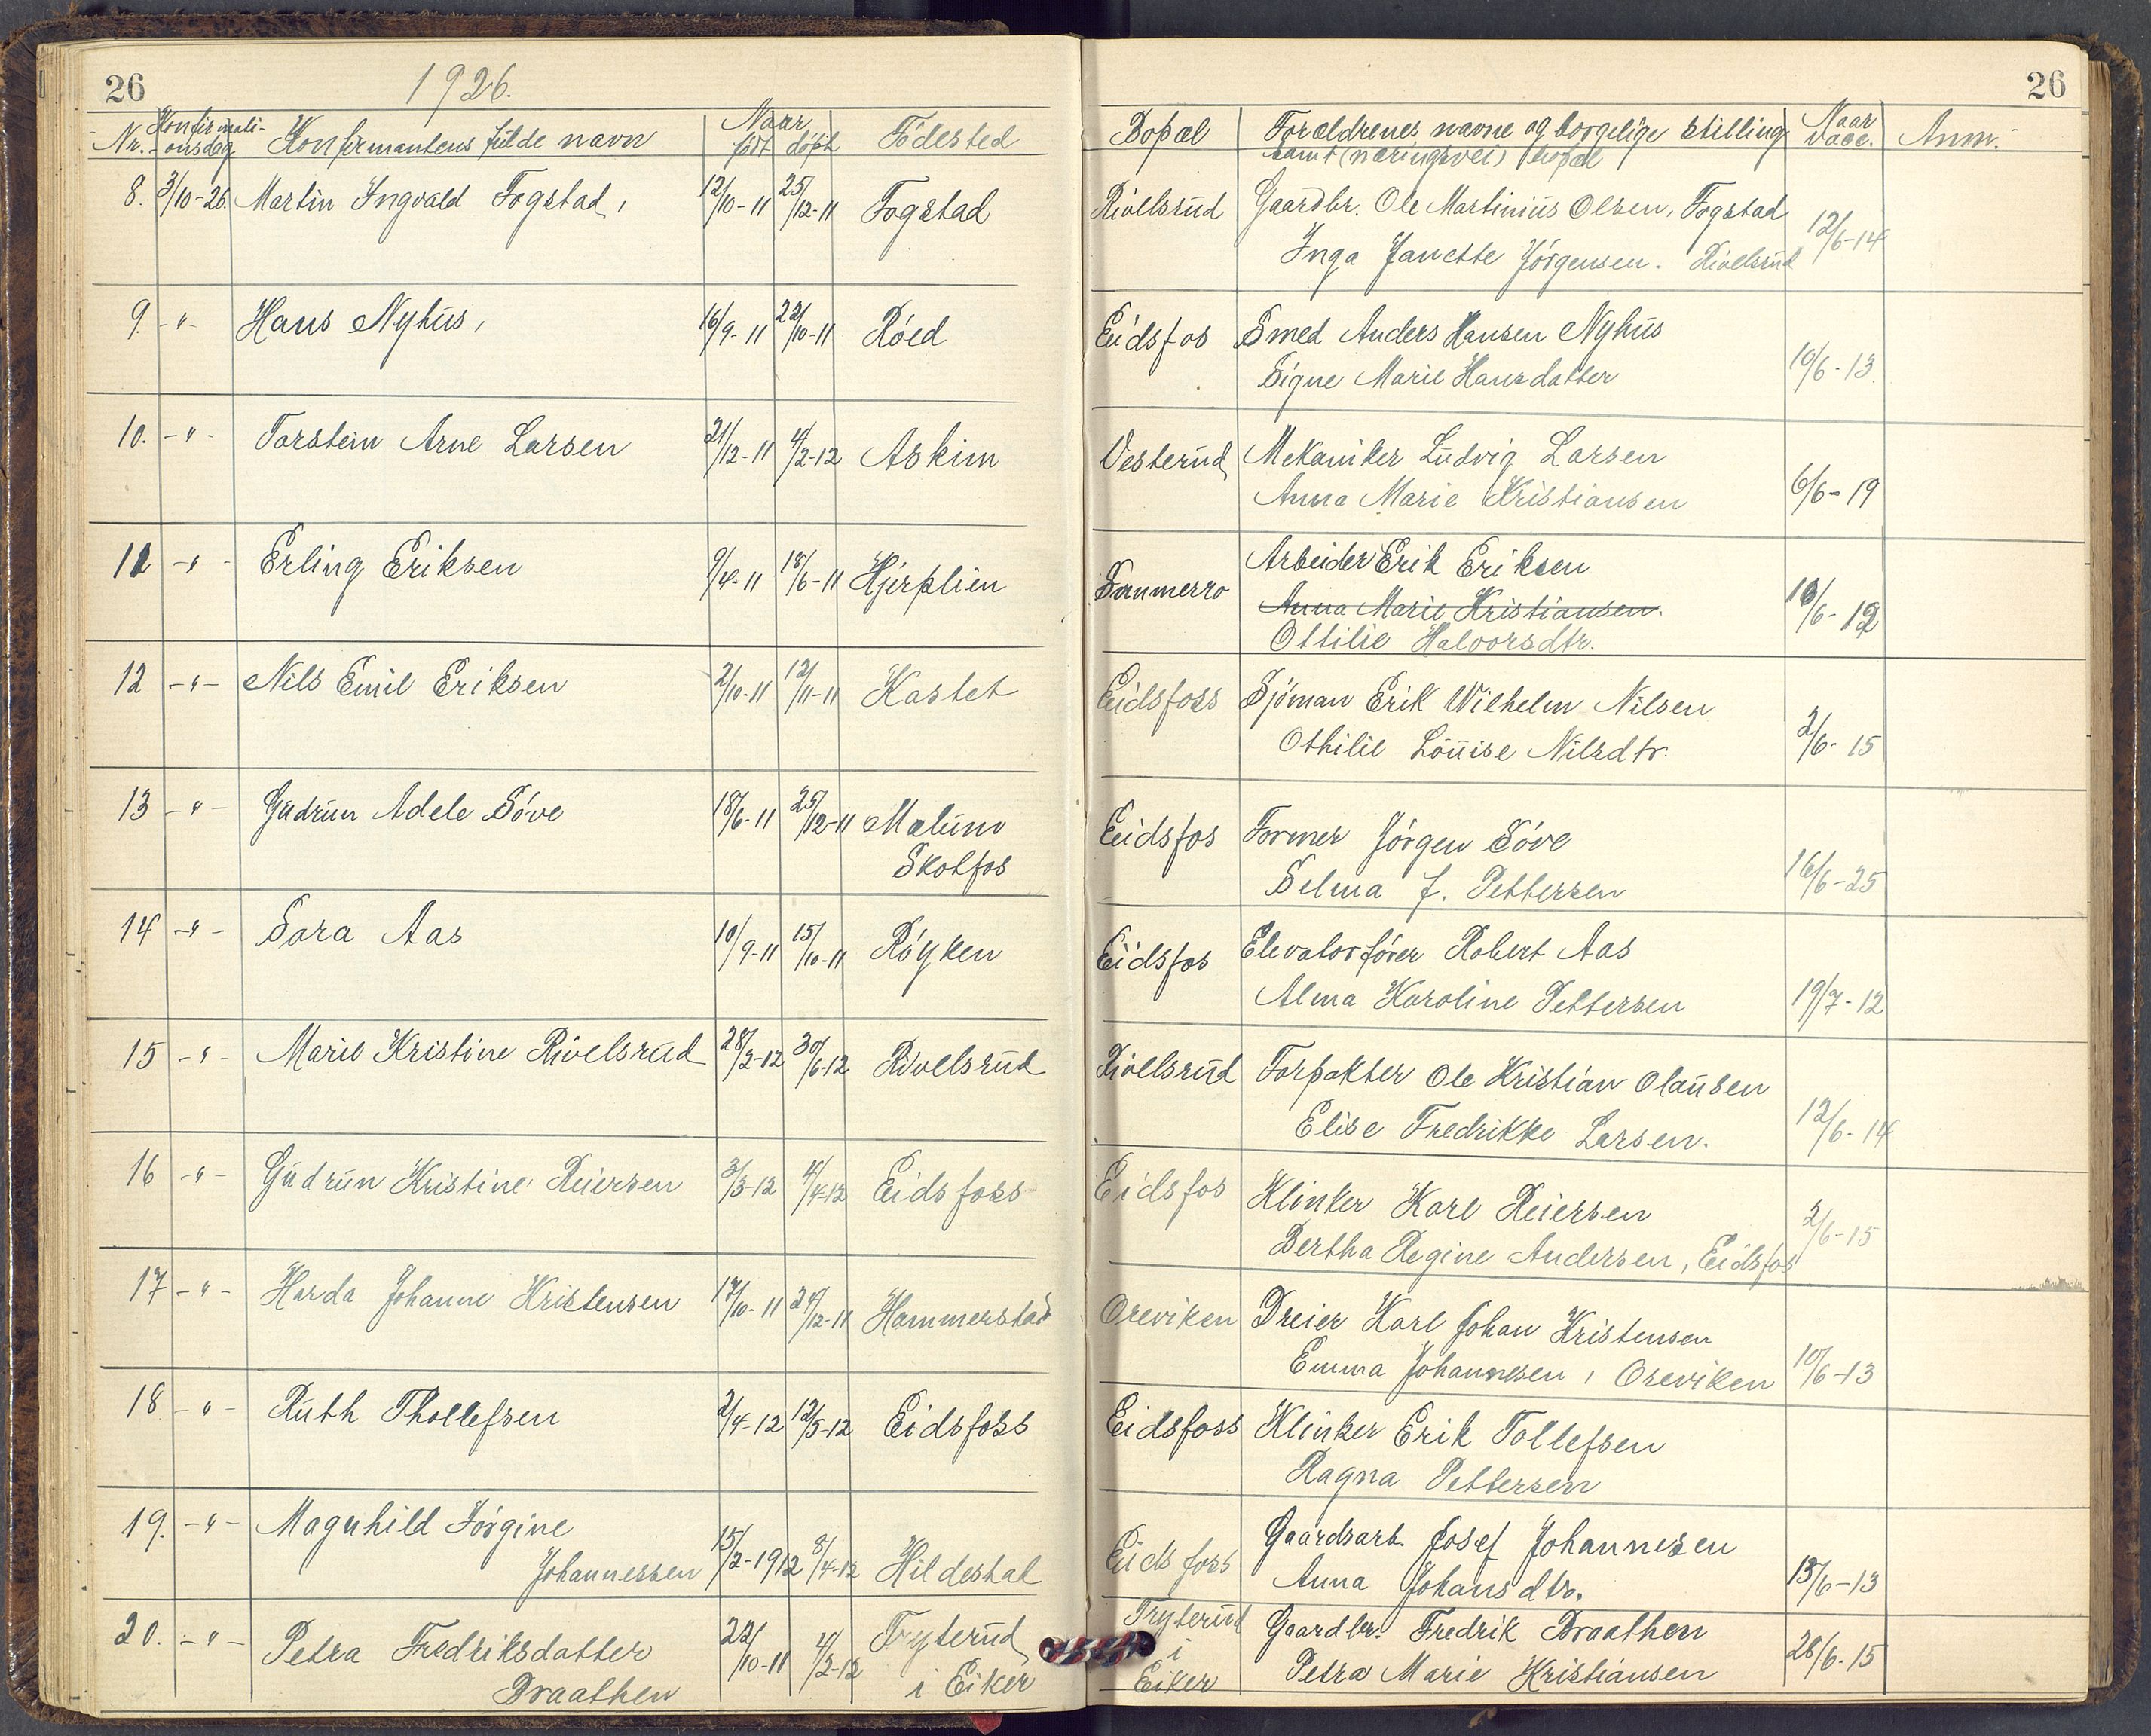 26
1926.
Nr. Konfirmationsdag Konfirmantens fulde navn Naar født døpt Fødested
8. 3/10-26. Martin Ingvald Fogstad, 12/10-11 25/12-11 Fogstad
9. -"- Hans Nyhus, 16/9-11 22/10-11 Røed
10. -"- Torstein Arne Larsen 21/12-11 4/2-12 Askim
11 -"- Erling Eriksen 9/4-11 18/6-11 Hjerplien
12 -"- Nils Emil Eriksen 2/10-11 12/11-11 Kastet
13 -"- Gudrun Adele Søve 18/6-11 25/12-11 Melum
Skotfos
14 -"- Sara Aas 10/9-11 15/10-11 Røyken
15 -"- Marie Kristine Rivelsrud 28/2-12 30/6-12 Rivelsrud
16 -"- Gudrun Kristine Reiersen 3/3-12 4/4-12 Eidsfoss
17 -"- Harda Johanne Kristensen 17/10-11 24/12-11 Hammerstad
18 -"- Ruth Thollefsen 2/4-12 12/5-12 Eidsfoss
19. -"- Magnhild Jørgine
Johannessen 15/2-1912 8/4-12 Hildestal
20. -"- Petra Fredriksdatter 22/10-11 4/2-12 Tryterud
Braathen i Eiker
26
Bopæl Forældrenes navne og borgelige stilling Naar vacc. Anm.
samt (næringsvei) bopæl
Rivelsrud Gaardbr. Ole Martinius Olsen, Fogstad
Inga Janette Jørgensen. Rivelsrud 12/6-14
Eidsfos Smed Anders Hansen Nyhus
Signe Marie Hansdatter 10/6-13.
Vesterud Mekaniker Ludvig Larsen
Anna Marie Kristiansen 6/6-19
Arbeider Erik Eriksen
Sommerro Anna Marie Kristiansen. 10/6-12
Ottilie Halvorsdtr.
Eidsfoss Sjöman Erik Wilhelm Nilsen
Othilie Louise Nilsdtr. 2/6-15
Eidsfos Former Jørgen Søve
Selma J. Pettersen 16/6-25
Eidsfos Elevatorfører Robert Aas
Alma Karoline Pettersen 19/7-12
Rivelsrud Forpakter Ole Kristian Olausen
Elise Fredrikke Larsen. 12/6-14
Eidsfos Klinker Karl Reiersen
Bertha Regine Andersen, Eidsfos 2/6-15
Oreviken Dreier Karl Johan Kristensen
Emma Johannesen, Oreviken 10/6-13
Eidsfoss Klinker Erik Tollefsen
Ragna Pettersen
Gaardsarb. Josef Johannesen
Eidsfoss Anna Johansdtr. 13/6-13
Tryterud Gaardbr. Fredrik Braathen
i
Eiker Petra Marie Kristiansen 28/6-15